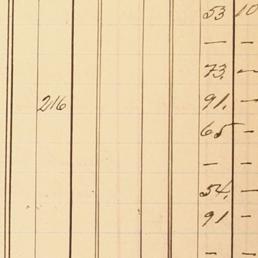 53 10
— —
73. —
216 91. —
65 —
— —
54. —
91 —
— —